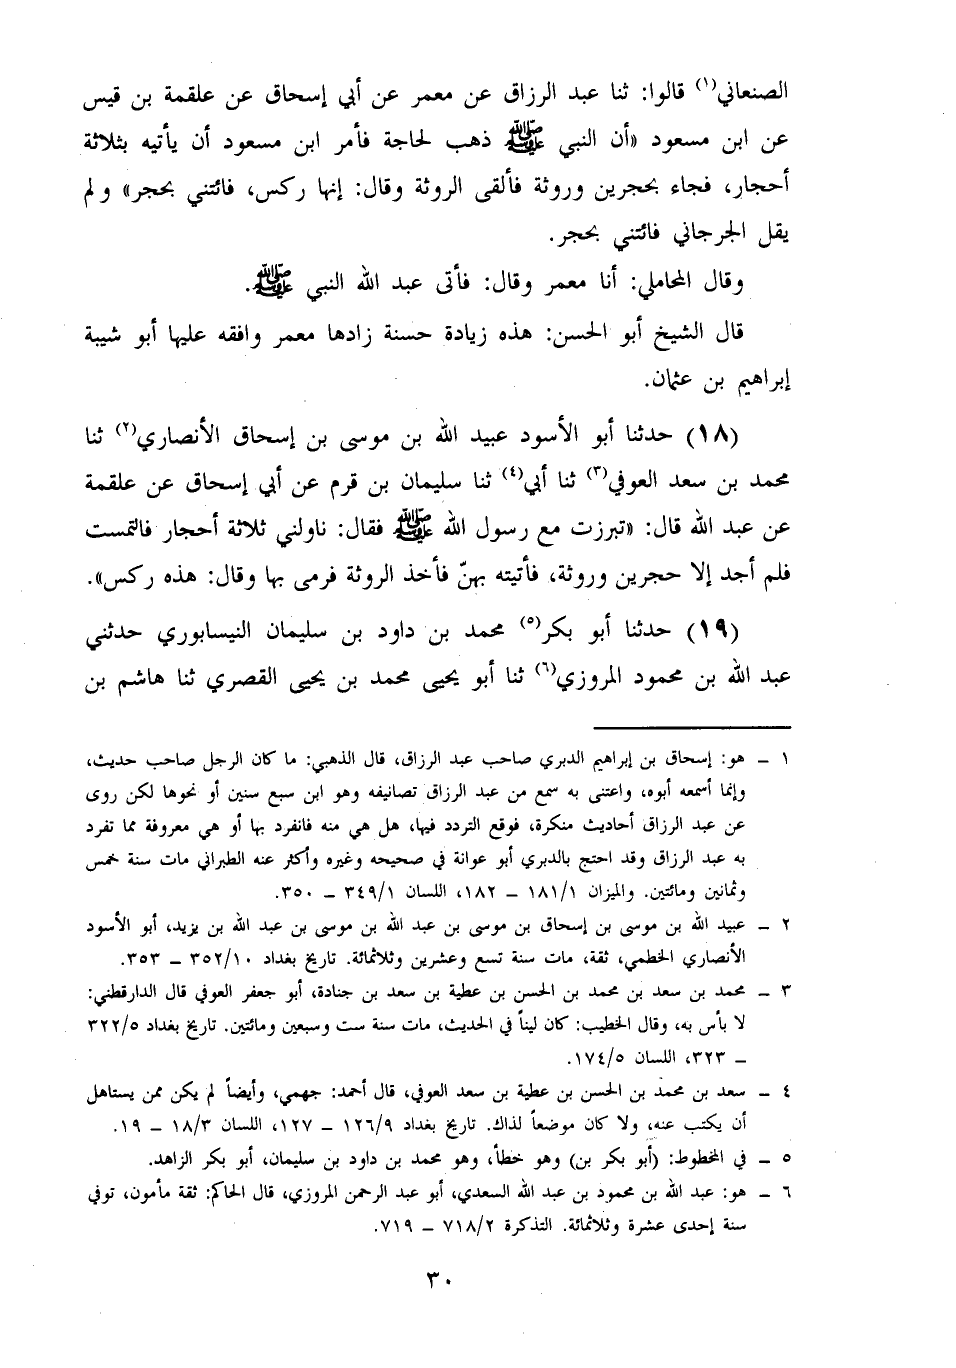 الصنعاني(١) قالوا: ثنا عبد الرزاق عن معمر عن أبي إسحاق عن علقمة بن قيس
عن ابن مسعود «أن النبي ﷺ ذهب لحاجة فأمر ابن مسعود أن يأتيه بثلاثة
أحجار، فجاء بحجرين وروثة فألقى الروثة وقال: إنها ركس، فائتني بحجر» ولم
يقل الجرجاني فائتني بحجر.
وقال المحاملي: أنا معمر وقال: فأتى عبد الله النبي ﷺ.
قال الشيخ أبو الحسن: هذه زيادة حسنة زادها معمر وافقه عليها أبو شيبة
إبراهيم بن عثمان.
(١٨) حدثنا أبو الأسود عبيد الله بن موسى بن إسحاق الأنصاري(٢) ثنا
محمد بن سعد العوفي(٣) ثنا أبي(٤) ثنا سليمان بن قرم عن أبي إسحاق عن علقمة
عن عبد الله قال: «تبرزت مع رسول الله ﷺ فقال: ناولني ثلاثة أحجار فالتمست
فلم أجد إلا حجرين وروثة، فأتيته بهنّ فأخذ الروثة فرمى بها وقال: هذه ركس».
(١٩) حدثنا أبو بكر(٥) محمد بن داود بن سليمان النيسابوري حدثني
عبد الله بن محمود المروزي(٦) ثنا أبو يحيى محمد بن يحيى القصري ثنا هاشم بن
١ ـ هو: إسحاق بن إبراهيم الدبري صاحب عبد الرزاق، قال الذهبي: ما كان الرجل صاحب حديث،
وإنما أسمعه أبوه، واعتنى به سمع من عبد الرزاق تصانيفه وهو ابن سبع سنين أو نحوها لكن روى
عن عبد الرزاق أحاديث منكرة، فوقع التردد فيها، هل هي منه فانفرد بها أو هي معروفة مما تفرد
به عبد الرزاق وقد احتج بالدبري أبو عوانة في صحيحه وغيره وأكثر عنه الطبراني مات سنة خمس
وثمانين ومائتين. والميزان ١٨١/١ ـ ١٨٢، اللسان ٣٤٩/١ ـ ٣٥٠.
٢ ـ عبيد الله بن موسى بن إسحاق بن موسى بن عبد الله بن موسى بن عبد الله بن يزيد، أبو الأسود
الأنصاري الخطمي، ثقة، مات سنة تسع وعشرين وثلاثمائة. تاريخ بغداد ٣٥٢/١٠ ـ ٣٥٣.
٣ ـ محمد بن سعد بن محمد بن الحسن بن عطية بن سعد بن جنادة، أبو جعفر العوفي قال الدارقطني:
لا بأس به، وقال الخطيب: كان ليناً في الحديث، مات سنة ست وسبعين ومائتين. تاريخ بغداد ٣٢٢/٥
ـ ٣٢٣، اللسان ١٧٤/٥.
٤ ـ سعد بن محمد بن الحسن بن عطية بن سعد العوفي، قال أحمد: جهمي، وأيضاً لم يكن ممن يستاهل
أن يكتب عنه، ولا كان موضعاً لذاك. تاريخ بغداد ١٢٦/٩ ـ ١٢٧، اللسان ١٨/٣ ـ ١٩.
٥ ـ في المخطوط: (أبو بكر بن) وهو خطأ، وهو محمد بن داود بن سليمان، أبو بكر الزاهد.
٦ ـ هو: عبد الله بن محمود بن عبد الله السعدي، أبو عبد الرحمن المروزي، قال الحاكم: ثقة مأمون، توفي
سنة إحدى عشرة وثلاثمائة. التذكرة ٧١٨/٢ ـ ٧١٩.
٣٠